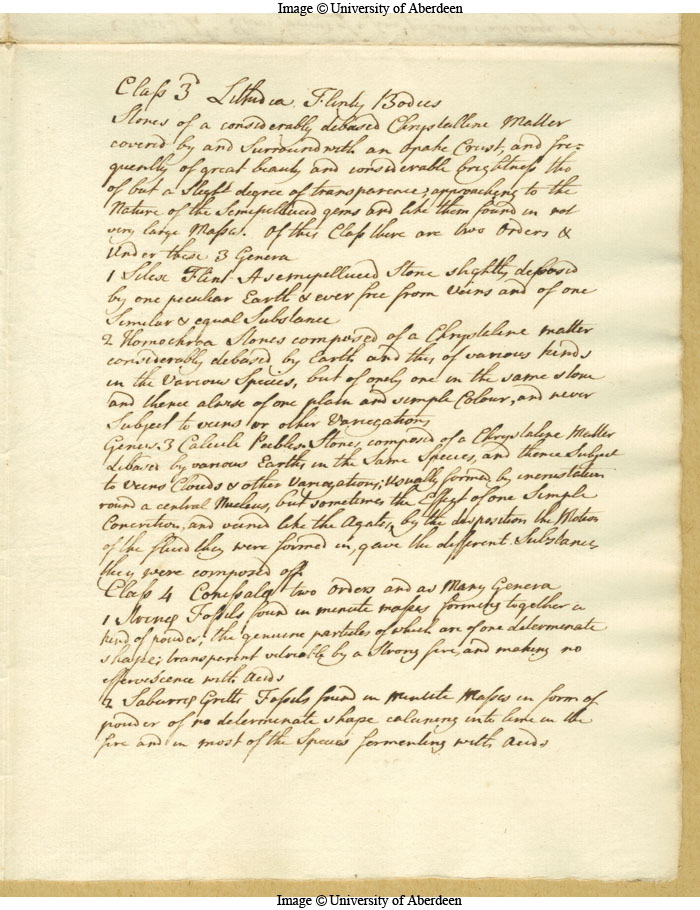 Image © University of Aberdeen
Class 3d Lithidia Flinty Bodies
Stones of a considerably debased Chrystalline Matter
covered by and Surround with an Opake Crust, and fre=
quently of great beauty and considerable brightness tho
of but a Slight degree of transparence; approaching to the
Nature of the Semipellucid gems and like them found in not
very large Masses. Of this Class there are two Orders &
Under these 3 Genera
1 Silex Flint A semipellucid Stone slightly debased
by one peculiar Earth & ever free from Veins and of one
Similar & equal Substance
2 Homochroa Stones composed of a Chrystaline matter
considerably debased by Earth and this of various kinds
in the Various Species, but of only one in the same stone
and thence alwise of one plain and simple Colour, and never
Subject to veins or other Variegations
Genus 3 Calculi Pebbles Stones composed of a Chrystaline Matter
debased by various Earths in the Same Species, and thence Subject
to Veins Clouds & other Variegations; Usually formed by incrustation
round a central Nucleus, but sometimes the Effect of one Simple
Concretion, and veined like the Agates, by the disposition the Motion
of the fluid they were formed in, gave the different Substances
they were composed off
Class 4 two Orders and as Many Genera
1 Fossils found in minute masses forming together a
kind of powder; the genuine particles of which are of one determinate
shape; transparent by a Strong fire, and making no
effervescence with Acids
2 Saburræ Gritts Fossils found in Minute Masses in form of
powder of no determinate shape calcining into lime in the
fire and in most of the Species fermenting with Acids
Image © University of Aberdeen